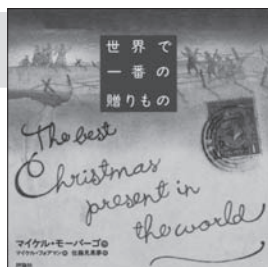 世界で
一番の
贈りもの
The best
Christmas
present in
the world
マイケル・モーパーゴ作
マイケル・フォアマン絵 佐藤見果夢訳
評論社